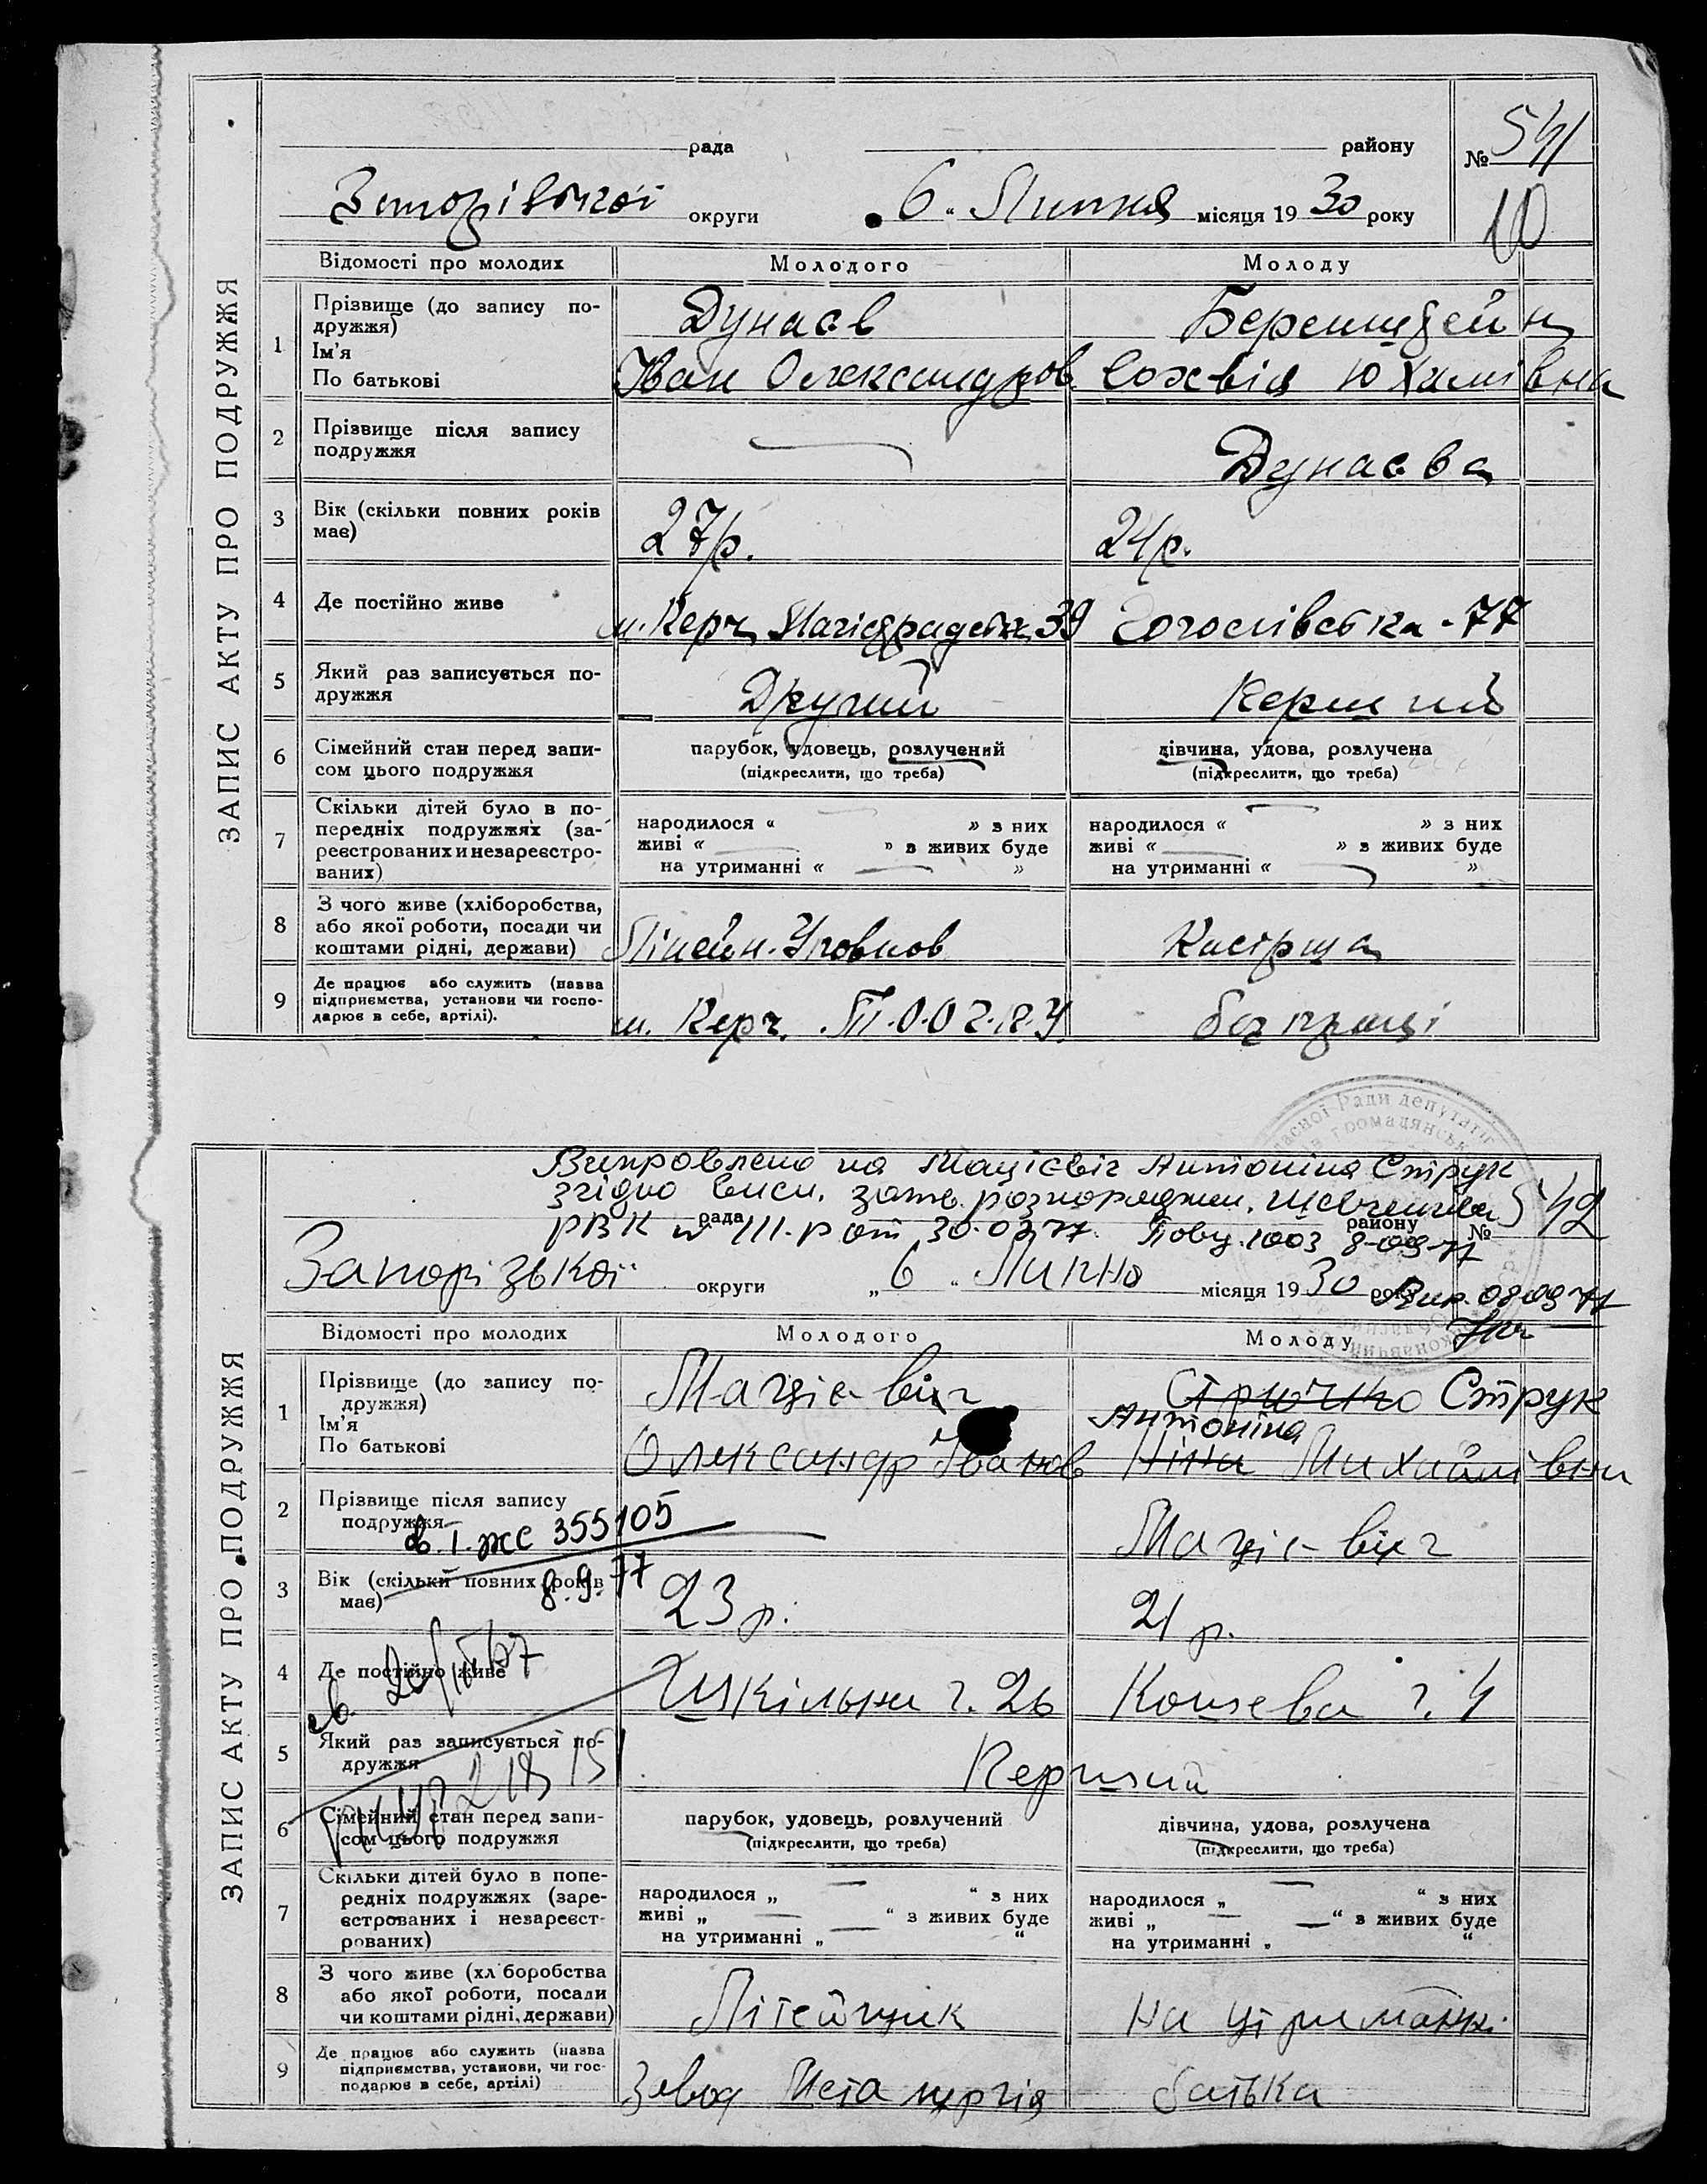 ЗАПИС АКТУ ПРО ПОДРУЖЖЯ
рада району № 541
Запорізької округи „6“ Липня місяця 1930 року
10
Відомості про молодих Молодого Молоду
1 Прізвище (до запису по-
дружжя) Дунаєв Беренштейн
Ім'я
По батькові Іван Олександров Софвія Юхимівна
2 Прізвище після запису
подружжя Дунаєва
3 Вік (скільки повних років
має) 27р. 24р.
4 Де постійно живе м. Керч 39 77
5 Який раз записується по-
дружжя Другий Перший
6 Сімейний стан перед запи-
сом цього подружжя
парубок, удовець, розлучений
(підкреслити, що треба)
дівчина, удова, розлучена
(підкреслити, що треба)
7 Скільки дітей було в по-
передніх подружжях (за-
реєстрованих и незареєстро-
ваних)
народилося « » з них
живі « » з живих буде
на утриманні « »
народилося « » з них
живі « » з живих буде
на утриманні « »
8 З чого живе (хліборобства,
або якої роботи, посади чи
коштами рідні, держави) Касірша
9 Де працює або служить (назва
підприємства, установи чи госпо-
дарює в себе, артілі). м. Керч. без праці
ЗАПИС АКТУ ПРО ПОДРУЖЖЯ
Виправлено на Мацієвіч Антоніна Струк
згідно висн. затв. розпоряджен. Шевченків
РВК № 111-р от 30.03.77. 1003 8-09-77
рада району № 542
Запорізької округи „6“ Липня місяця 1930 року
08.09.77
Відомості про молодих Молодого Молоду
1 Прізвище (до запису по-
дружжя) Мацієвіч Струк
Ім'я Антоніна
По батькові Олександр Іванов Ніна Михайлівна
2 Прізвище після запису
подружжя Мацієвіч
355105
8.9.77
3 Вік (скільки повних років
має) 23 р. 21 р.
4 Де постійно живе Шкільна ч. 26 ч. 4
5 Який раз записується по-
дружжя Перший
6 Сімейний стан перед запи-
сом цього подружжя
парубок, удовець, розлучений
(підкреслити, що треба)
дівчина, удова, розлучена
(підкреслити, що треба)
7 Скільки дітей було в попе-
редніх подружжях (заре-
єстрованих і незареєст-
рованих)
народилося „ “ з них
живі „ “ з живих буде
на утриманні „ “
народилося „ “ з них
живі „ “ з живих буде
на утриманні „ “
8 З чого живе (хліборобства
або якої роботи, посади
чи коштами рідні, держави) Літейщик На утриманні
9 Де працює або служить (назва
підприємства, установи, чи гос-
подарює в себе, артілі) Завод Металургія батька